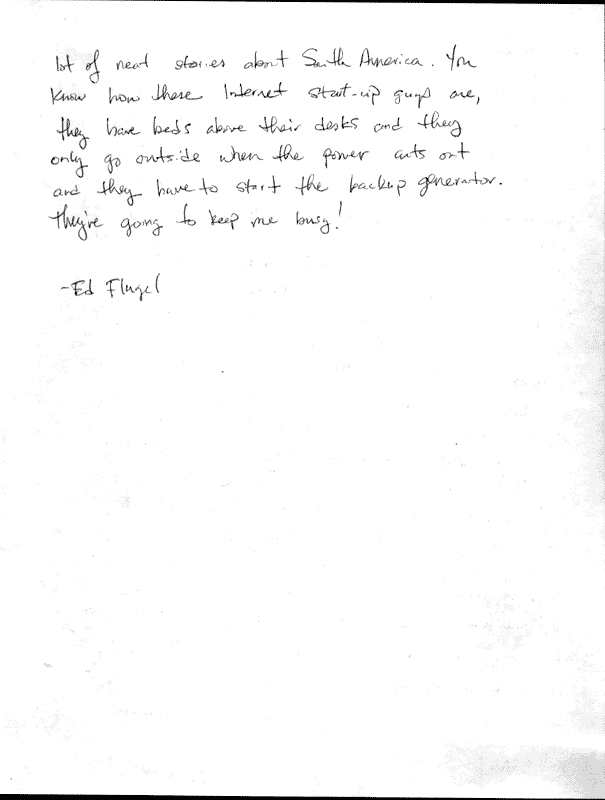 lot of neat stories about South America. You
know how these Internet start-up guys are,
they have beds above their desks and they
only go outside when the power cuts out
and they have to start the backup generator.
They're going to keep me busy!
-Ed Flugel